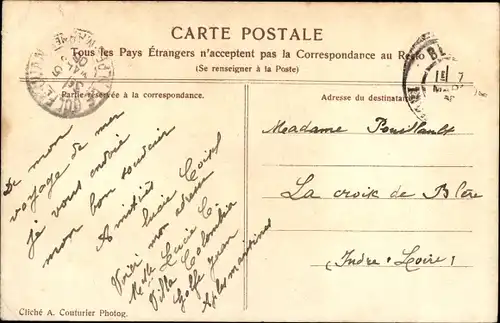 CARTE POSTALE
Tous les Pays Étrangers n'acceptent pas la Correspondance au Recto
(Se renseigner à la Poste)
Partie réservée à la correspondance.
De mon
voyage de mer
je vous envoie
mon bon souvenir
Amitiés
Lucie
Voici mon adresse
Melle Lucie C.
Villa Colombia
Golfe Juan
Alpes maritimes
Adresse du destinataire
Madame Pouillault
La croix de Bléré
(Indre Loire)
Cliché A. Couturier Photog.